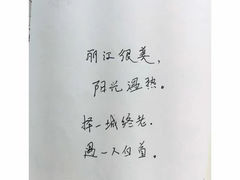 丽江很美，
阳光温热。
择一城终老，
遇一人白首。